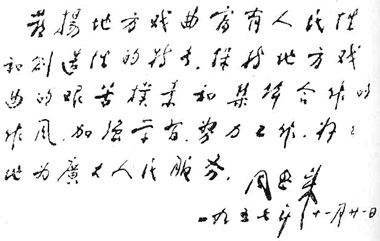 发揚地方戏曲富有人民性
和创造性的特点，保持地方戏
曲的艰苦樸素和集体合作的
作风，加强学習，努力工作，好好
地为廣大人民服务。
周恩来
一九五七年十一月廿一日